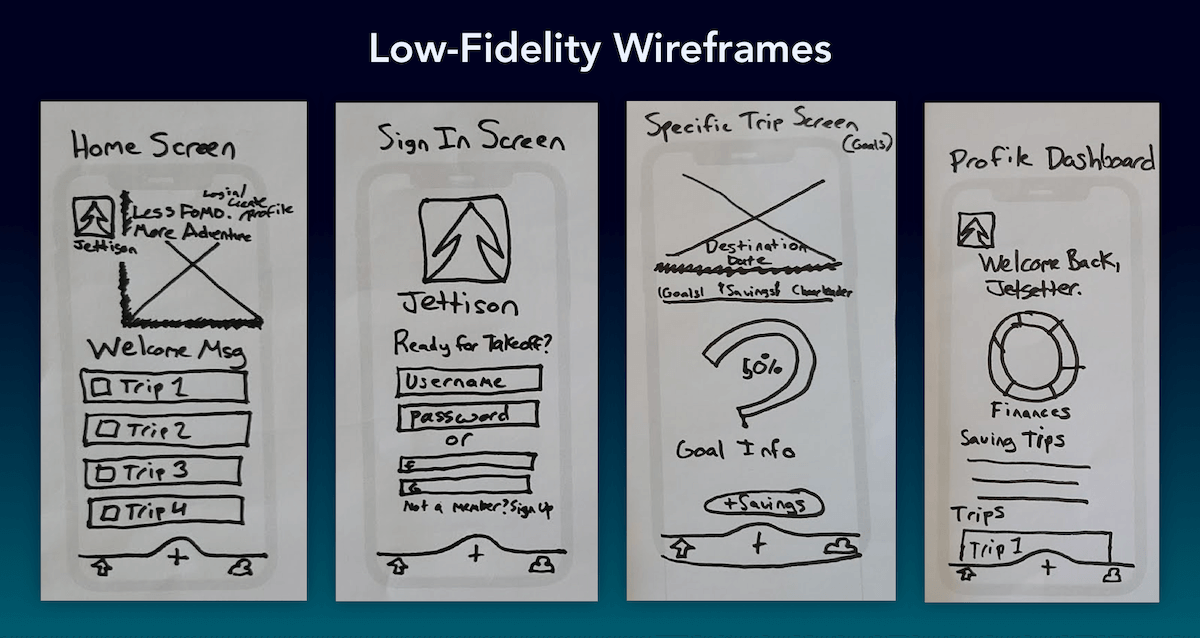 Low-Fidelity Wireframes
Home Screen
Login/
Create
Profile
Less FOMO.
More Adventure
Jettison
Welcome Msg
Trip 1
Trip 2
Trip 3
Trip 4
+
Sign In Screen
Jettison
Ready for Takeoff?
Username
Password
or
F
G
Not a member? Sign Up
+
Specific Trip Screen
(Goals)
Destination
Date
Goals Savings Cheerleader
50%
Goal Info
+Savings
+
Profile Dashboard
Welcome Back,
Jetsetter.
Finances
Saving Tips
Trips
Trip 1
+